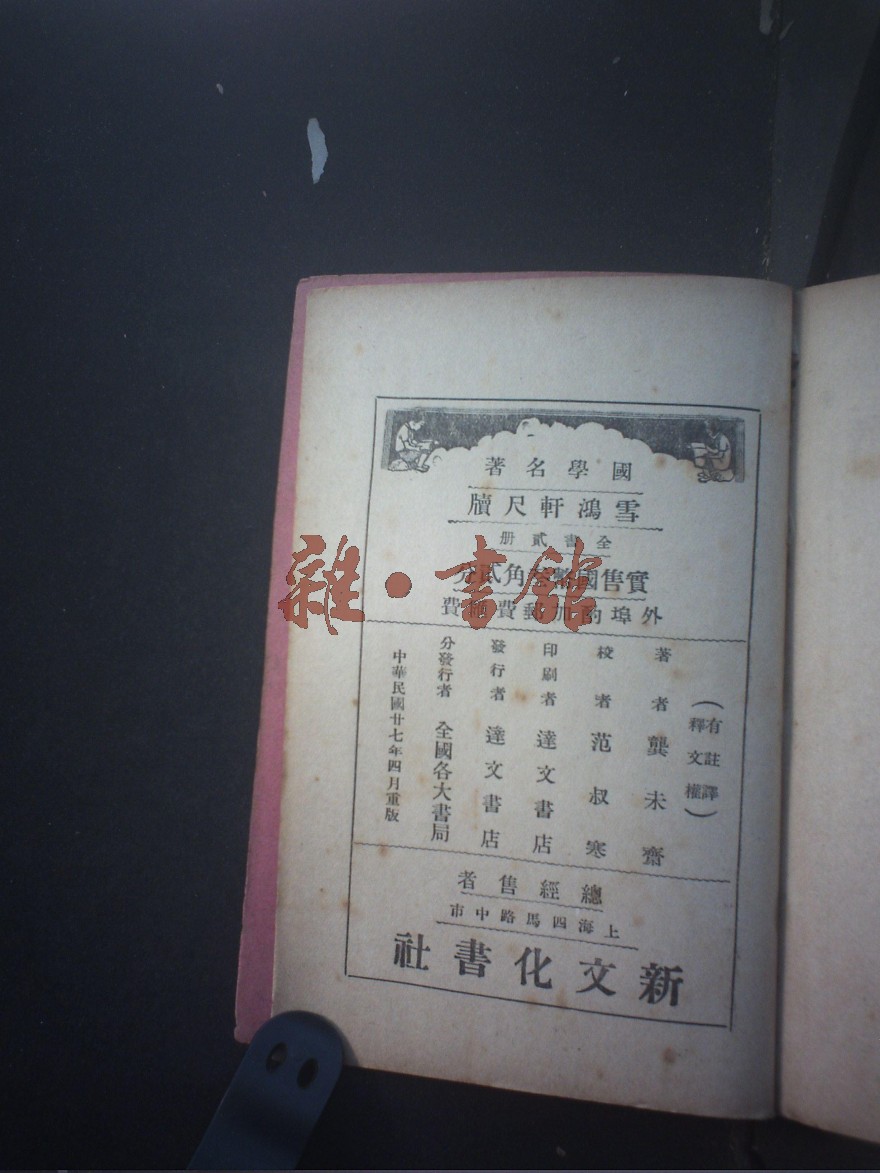 國學名著
雪鴻軒尺牘
全書貳册
實售國幣角貳分
外埠酌加郵費匯費
（有註譯釋文權）
著者 龔未齋
校者 范叔寒
印刷者 達文書店
發行者 達文書店
分發行者 全國各大書局
中華民國廿七年四月重版
總經售者
上海四馬路中市
新文化書社
雜·書館